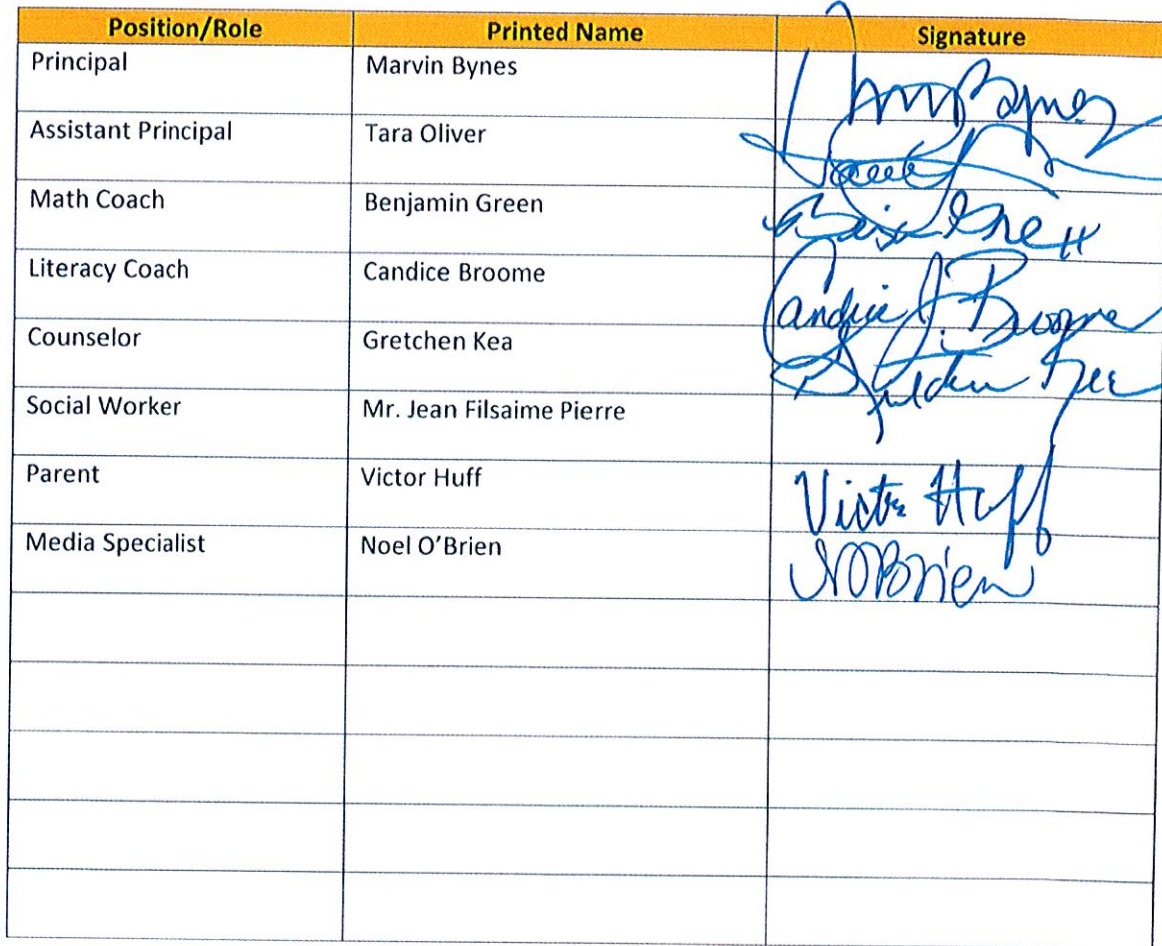 Position/Role Printed Name Signature
Principal Marvin Bynes
Assistant Principal Tara Oliver
Math Coach Benjamin Green
Literacy Coach Candice Broome Candice J. Broome
Counselor Gretchen Kea Gretchen Kea
Social Worker Mr. Jean Filsaime Pierre
Parent Victor Huff Victor Huff
Media Specialist Noel O'Brien NOBrien